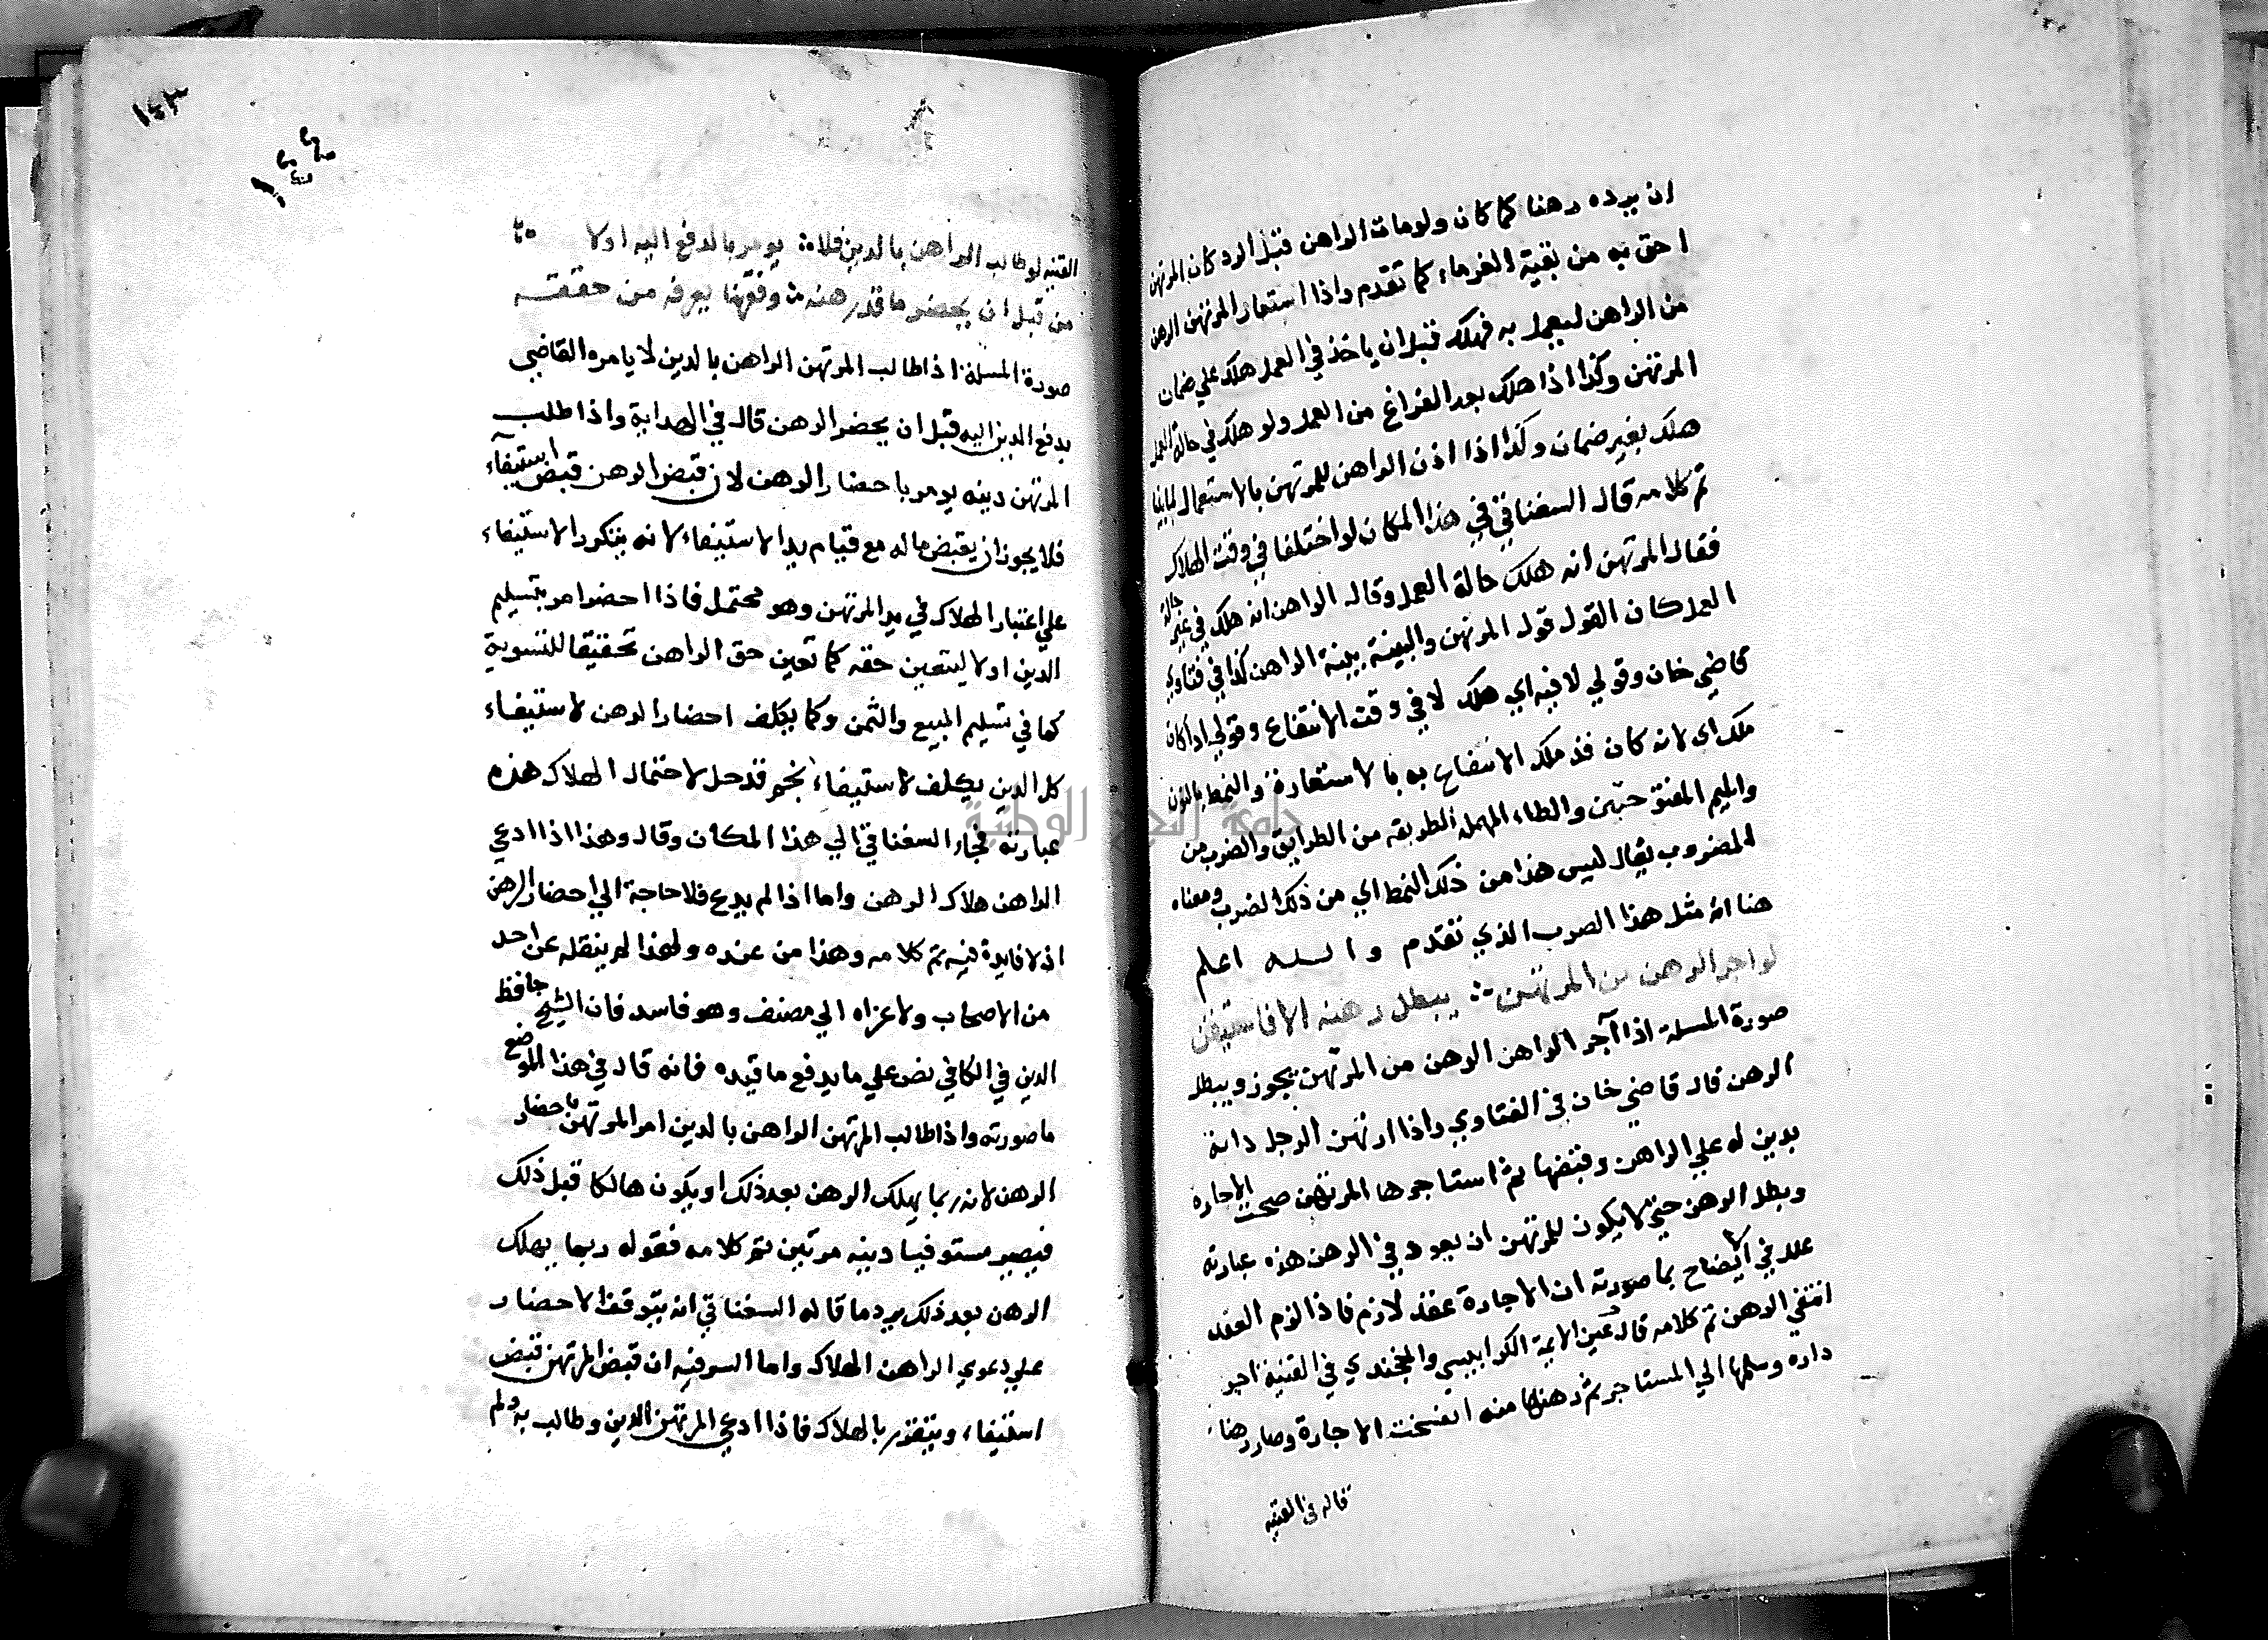 ان يرده رهنا كما كان ولو مات الراهن قبل الرد كان المرتهن
احق به من بقية الغرماء كما تقدم واذا استعار المرتهن الرهن
من الراهن ليعمل به فهلك قبل ان ياخذ في العمل هلك علي ضمان
المرتهن وكذا اذا هلك بعد الفراغ من العمل ولو هلك في حالة العمل
هلك بغير ضمان وكذا اذا اذن الراهن للمرتهن بالاستعمال لما بينا
تم كلامه قال السغناقي في هذا المكان لو اختلفا في وقت الهلاك
فقال المرتهن انه هلك حالة العمل وقال الراهن انه هلك في غير حالة
العمل كان القول قول المرتهن والبينة بينة الراهن كذا في فتاوي
قاضي خان وقولي لا فيه اي هلك لا في وقت الانتفاع وقولي اذ كان
ملك اي لانه كان قد ملك الانتفاع به بالاستعارة والنمط بالنون
والميم المفتوحتين والطاء المهملة الطريقه من الطرايق والضرب من
المضروب يقال ليس هذا من ذلك النمط اي من ذلك الضرب ومعناه
هنا انه مثل هذا الضرب الذي تقدم والله اعلم
لو اجر الرهن من المرتهن يبطل رهنه الا فاستيقن
صورة المسلة اذا آجر الراهن الرهن من المرتهن يجوز ويبطل
الرهن قال قاضي خان في الفتاوي واذا ارتهن الرجل دابة
بدين له علي الراهن وقبضها ثم استاجرها المرتهن صحت الاجارة
وبطل الرهن حتي لا يكون للمرتهن ان يعود في الرهن هذه عبارته
علل في الايضاح بما صورته ان الاجارة عقد لازم فاذا لزم العقد
انتفي الرهن تم كلامه قال عين الايمة الكرابيسي والخجندي في القنية اجر
داره وسلمها الي المستاجر ثم رهنها منه انفسخت الاجارة وصار رهنا
قاله في القنيه
١٤٣
١٤٤
القنيه لو طالب الراهن بالدين فلا يومر بالدفع اليه اولا
من قبل ان يحضر ما قد رهنه وفقهنا يعرفه من حققه
صورة المسلة اذا طالب المرتهن الراهن بالدين لا يامره القاضي
بدفع الدين اليه قبل ان يحضر الرهن قال في الهداية واذا طلب
المرتهن دينه يومر باحضار الرهن لان قبض الرهن قبض استيفاء
فلا يجوز ان يقبض ماله مع قيام يد الاستيفاء لانه يتكرر الاستيفاء
علي اعتبار الهلاك في يد المرتهن وهو محتمل فاذا احضر امر بتسليم
الدين اولا ليتعين حقه كما تعين حق الراهن تحقيقا للتسوية
كما في تسليم المبيع والثمن وكما يكلف احضار الرهن لاستيفاء
كل الدين يكلف لاستيفاء نجم قد حل لاحتمال الهلاك هذه
عبارته فجاء السغناقي الي هذا المكان وقال وهذا اذا ادعي
الراهن هلاك الرهن واما اذا لم يدع فلا حاجة الي احضار الرهن
اذ لا فايدة فيه تم كلامه وهذا من عنده ولهذا لم ينقله عن احد
من الاصحاب ولا عزاه الي مصنف وهو فاسد فان الشيخ حافظ
الدين في الكافي نص علي ما يدفع ما قيده فانه قال في هذا الموضع
ما صورته واذا طالب المرتهن الراهن بالدين امر المرتهن باحضار
الرهن لانه ربما يهلك الرهن بعد ذلك او يكون هالكا قبل ذلك
فيصير مستوفيا دينه مرتين تم كلامه فقوله ربما يهلك
الرهن بعد ذلك يرد ما قاله السغناقي انه يتوقف الاحضار
علي دعوي الراهن الهلاك واما السر فيه ان قبض المرتهن قبض
استيفاء ويتقرر بالهلاك فاذا ادعي المرتهن الدين وطالب به ولم
جامعة النجاح الوطنية